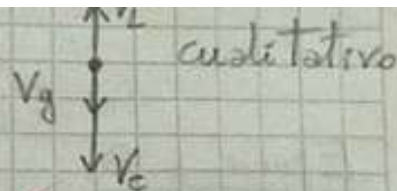 cualitativo
Vg
Vc